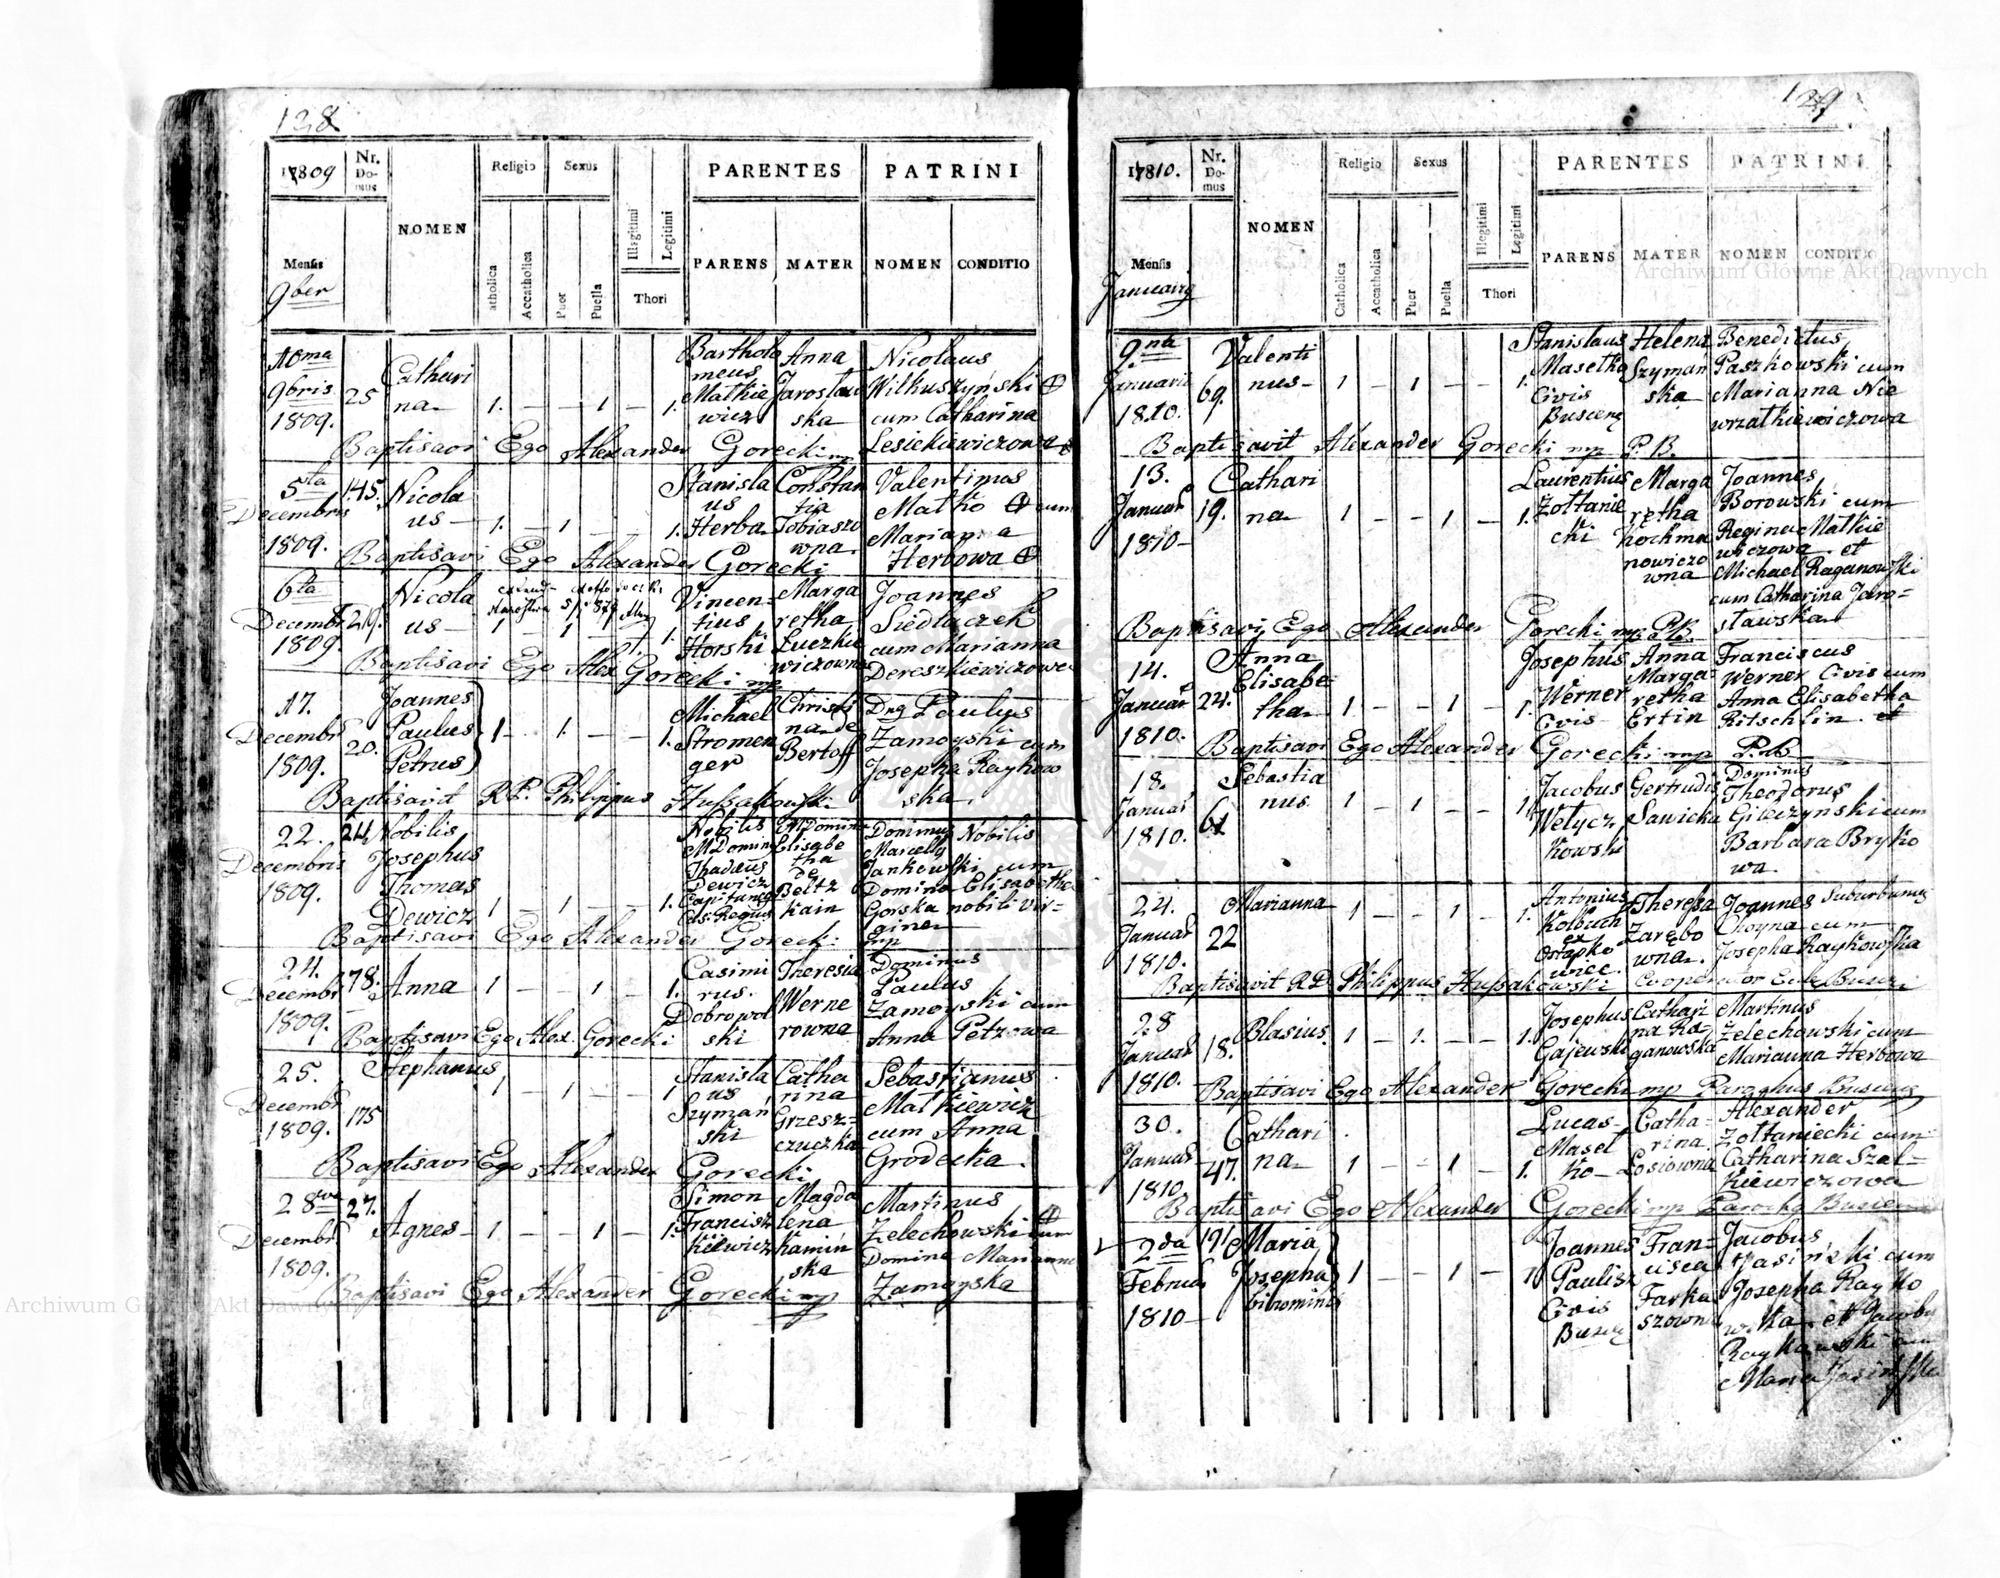 128
1809
Nr. Domus
NOMEN
Religio
Sexus
PARENTES
PATRINI
Catholica
Accatholica
Puer
Puella
Illegitimi
Legitimi
Thori
Mensis
9ber
PARENS
MATER
NOMEN
CONDITIO
10ma 9bris 1809.
25
Cathari
na
1. — — 1 — 1.
Bartholo
meus
Matkie
wicz
Anna
Jaroslaw
ska
Nicolaus
Wilkuszyński
cum Catharina
Lesiekiewiczowa
Baptisavi Ego Alexander Gorecki mp
5ta Decembris 1809.
145.
Nicola
us —
1. — 1 — — 1.
Stanisla
us
Herba
Constan
tia
Tobiasze
wna
Valentinus
Matko cum
Marianna
Herbowa
Baptisavi Ego Alexander Gorecki
6ta Decembr 1809.
219.
Nicola
us —
1 — 1 — 1.
Vincen=
tius
Horski
Marga
retha
Łuczkie
wiczowna
Joannes
Siedlaczek
cum Marianna
Dereszkiewiczowa
Baptisavi Ego Alex Gorecki mp
17. Decembr 1809.
20.
Joannes
Paulus
Petrus
1 — 1. — — 1.
Michael
Stromen
ger
Christi
na de
Bertoff
Dng Paulus
Zamoyski cum
Josepha Raykow
ska
Baptisavit R.P. Philippus Hussakowski
22. Decembris 1809.
24.
Nobilis
Josephus
Thomas
Dewicz
1 — 1 — — 1.
Nobilis
MDomin
Thadeus
Dewicz
Capitaneg
Elisabe
tha
de
Beltz
Kain
Dominus Nobilis
Marcellg
Jankowski cum
Domina Elisabetha
Gorska nobili vir=
gine
Baptisavi Ego Alexander Gorecki mp
24. Decembr 1809.
78.
Anna
1 — — 1 — 1.
Casimi
rus.
Dobrowol
ski
Theresia
Werne
rowna
Dominus
Paulus
Zamoyski cum
Anna Petzowa
Baptisavi Ego Alex. Gorecki
25. Decembr 1809.
175
Stephanus
1 — 1 — — 1
Stanisla
us
Szymań
ski
Catha
rina
Grzesz=
czuczka
Sebastianus
Matkiewicz
cum Anna
Grodecka
Baptisavi Ego Alexander Gorecki
28va Decembr 1809.
27.
Agnes
1 — — 1 — 1.
Simon
Francisz
kiewicz
Magda
lena
Kamiń
ska
Martinus
Zelechowski cum
Domina Marianna
Zamoyska
Baptisavi Ego Alexander Gorecki mp
129
1810.
Nr. Domus
NOMEN
Religio
Sexus
PARENTES
PATRINI
Catholica
Accatholica
Puer
Puella
Illegitimi
Legitimi
Thori
Mensis
Januarig
PARENS
MATER
NOMEN
CONDITIO
9na Januarii 1810.
69.
Valenti
nus —
1 — 1 — — 1.
Stanislaus
Masetko
Civis
Buscens
Helena
Szyman
ska
Benedictus
Paszkowski cum
Marianna Nie
wrzatkiewiczowa
Baptisavit Alexander Gorecki mp P.B.
13. Januar 1810 —
19.
Cathari
na
1 — — 1 — 1.
Laurentius
Zoltanie
cki
Marga
retha
Kochma
nowiczo
wna
Joannes
Borowski cum
Regina Matkie
wiczowa et
Michael Raganowski
cum Catharina Jaro=
slawska
Baptisavi Ego Alexander Gorecki mp PB.
14. Januar 1810.
24.
Anna
Elisabe
tha
1 — — 1 — 1.
Josephus
Werner
Civis
Anna
Marga
retha
Ertin
Franciscus
Werner Civis cum
Anna Elisabetha
Ritschlin
Baptisavi Ego Alexander Gorecki mp P.B.
18. Januar 1810.
61
Sebastia
nus.
1 — 1 — — 1
Jacobus
Wetycz
kowski
Gertrudis
Sawicka
Dominus
Theodorus
Gileczynski cum
Barbara Bryko
wa
24. Januar 1810.
22
Marianna
1 — — 1 — 1.
Antonius
Kolbuch
ex
Ostapko
wiec.
Theresa
Zarębo
wna.
Joannes Suburbanus
Choyna cum
Josepha Raykowska
Baptisavit RD Philippus Hussakowski Cooperator
28 Januar 1810.
18.
Blasius
1 — 1. — — 1.
Josephus
Gajewski
Cathari
na Ra
ganowska
Martinus
Zelechowski cum
Marianna Herbowa
Baptisavi Ego Alexander Gorecki mp Parochus
30. Januar 1810.
47.
Cathari
na
1 — — 1 — 1.
Lucas
Masel
ko —
Catha=
rina
Losiowna
Alexander
Zoltaniecki cum
Catharina Szal=
kiewiczowa
Baptisavi Ego Alexander Gorecki mp Parochg
2da Februar 1810 —
191
Maria
Josepha
binominis
1 — — 1 — 1
Joannes
Paulisz
Civis
Fran=
cisca
Farka
szowna
Jacobus
Jasiński cum
Josepha Rayko
wska et Jacobus
Raykowski cum
Maria Jasińska
Archiwum Główne Akt Dawnych
Archiwum Główne Akt Dawnych